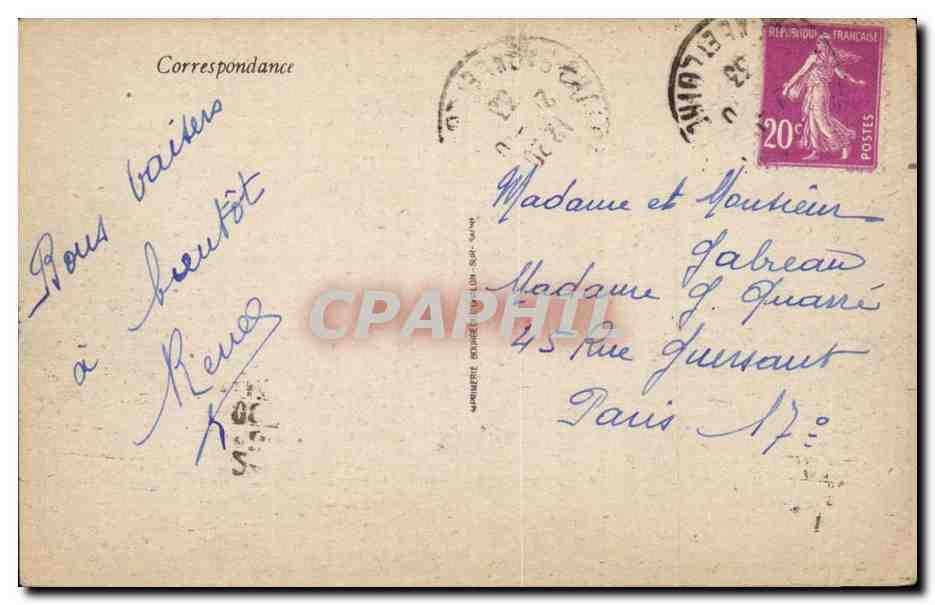 Correspondance
Bons baisers
à bientôt
René
RÉPUBLIQUE FRANÇAISE
20c
POSTES
Madame et Monsieur
Gabreau
Madame G. Quarré
45 Rue Guersant
Paris 17e
IMPRIMERIE BOURGEOIS CHALON-SUR-SAÔNE
CPAPHIL